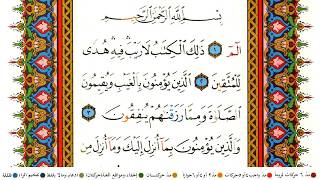 بِسْمِ ٱللَّهِ ٱلرَّحْمَٰنِ ٱلرَّحِيمِ
الٓمٓ ١ ذَٰلِكَ ٱلْكِتَٰبُ لَا رَيْبَ ۛ فِيهِ ۛ هُدًى
لِّلْمُتَّقِينَ ٢ ٱلَّذِينَ يُؤْمِنُونَ بِٱلْغَيْبِ وَيُقِيمُونَ
ٱلصَّلَوٰةَ وَمِمَّا رَزَقْنَٰهُمْ يُنفِقُونَ ٣
وَٱلَّذِينَ يُؤْمِنُونَ بِمَآ أُنزِلَ إِلَيْكَ وَمَآ أُنزِلَ مِن
مد ٦ حركات لزوماً